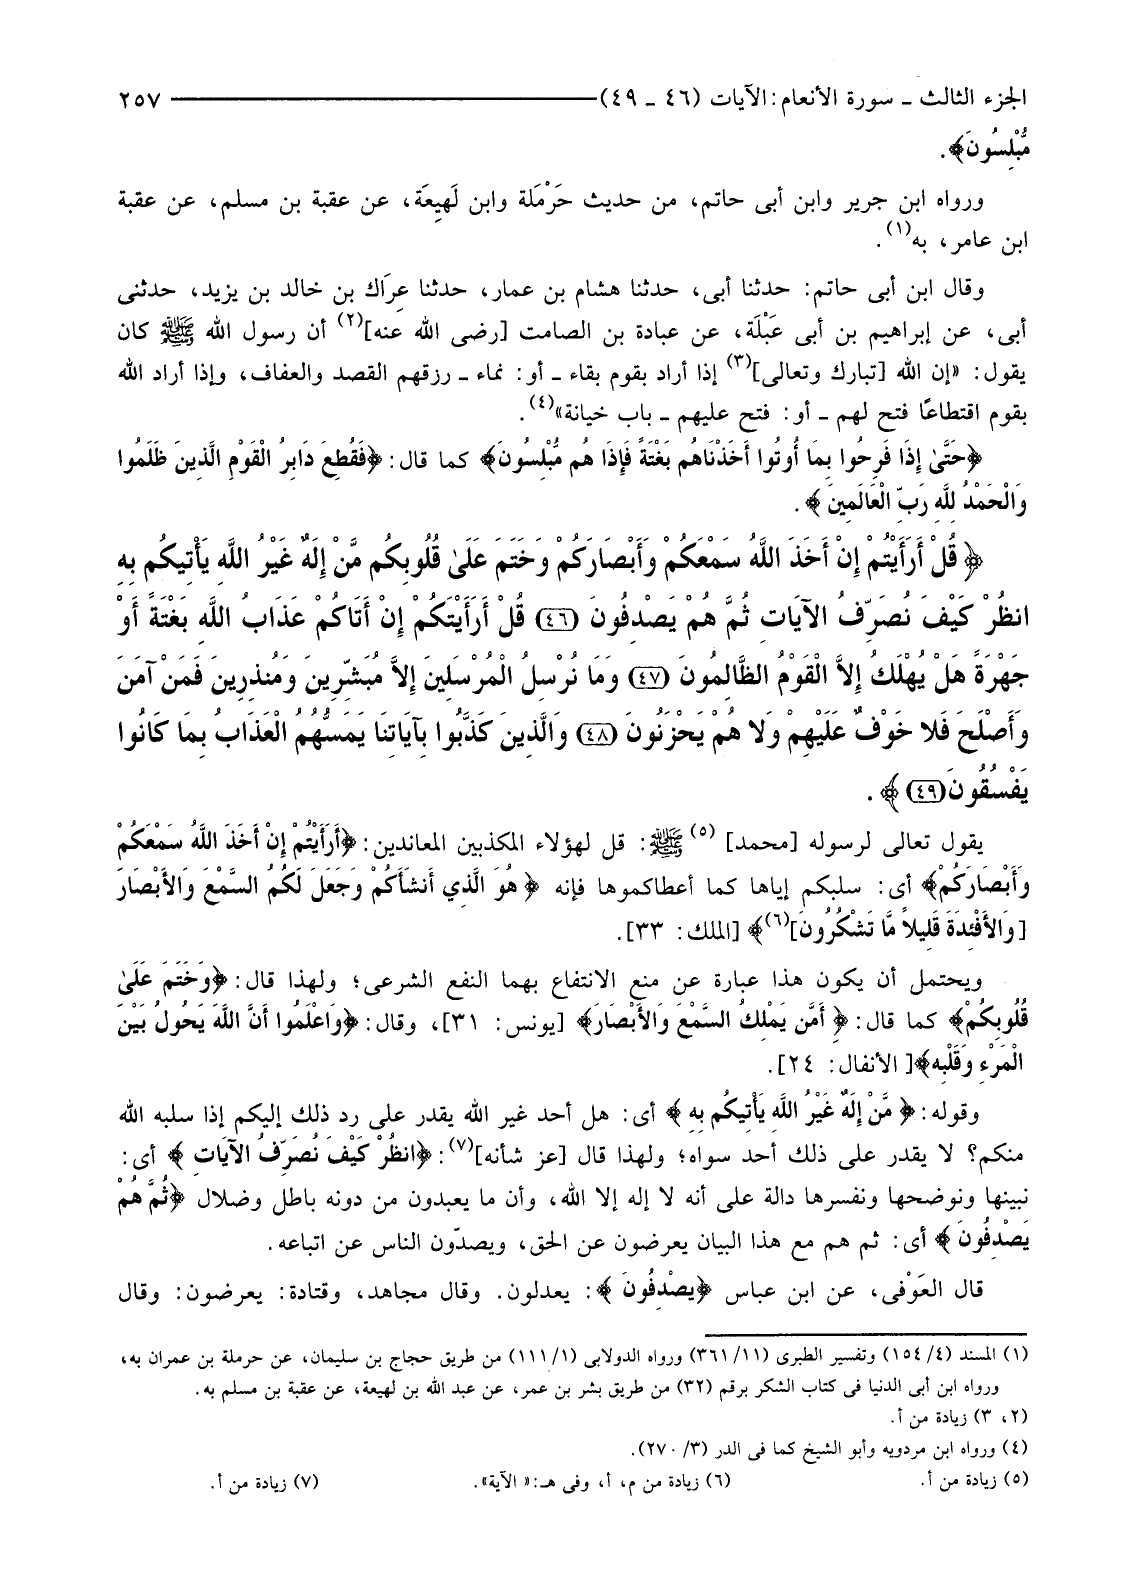 الجزء الثالث ـ سورة الأنعام: الآيات (٤٦ ـ ٤٩) ٢٥٧
مُّبْلِسُونَ﴾.
ورواه ابن جرير وابن أبى حاتم، من حديث حَرْمَلة وابن لَهِيعَة، عن عقبة بن مسلم، عن عقبة
ابن عامر، به(١).
وقال ابن أبى حاتم: حدثنا أبى، حدثنا هشام بن عمار، حدثنا عِرَاك بن خالد بن يزيد، حدثنى
أبى، عن إبراهيم بن أبى عَبْلَة، عن عبادة بن الصامت [رضى الله عنه](٢) أن رسول الله ﷺ كان
يقول: «إن الله [تبارك وتعالى](٣) إذا أراد بقوم بقاء ـ أو: نماء ـ رزقهم القصد والعفاف، وإذا أراد الله
بقوم اقتطاعًا فتح لهم ـ أو: فتح عليهم ـ باب خيانة»(٤).
﴿حَتَّىٰ إِذَا فَرِحُوا بِمَا أُوتُوا أَخَذْنَاهُم بَغْتَةً فَإِذَا هُم مُّبْلِسُونَ﴾ كما قال: ﴿فَقُطِعَ دَابِرُ الْقَوْمِ الَّذِينَ ظَلَمُوا
وَالْحَمْدُ لِلَّهِ رَبِّ الْعَالَمِينَ ﴾ .
﴿ قُلْ أَرَأَيْتُمْ إِنْ أَخَذَ اللَّهُ سَمْعَكُمْ وَأَبْصَارَكُمْ وَخَتَمَ عَلَىٰ قُلُوبِكُم مَّنْ إِلَهٌ غَيْرُ اللَّهِ يَأْتِيكُم بِهِ
انظُرْ كَيْفَ نُصَرِّفُ الآيَاتِ ثُمَّ هُمْ يَصْدِفُونَ (٤٦) قُلْ أَرَأَيْتَكُمْ إِنْ أَتَاكُمْ عَذَابُ اللَّهِ بَغْتَةً أَوْ
جَهْرَةً هَلْ يُهْلَكُ إِلاَّ الْقَوْمُ الظَّالِمُونَ (٤٧) وَمَا نُرْسِلُ الْمُرْسَلِينَ إِلاَّ مُبَشِّرِينَ وَمُنذِرِينَ فَمَنْ آمَنَ
وَأَصْلَحَ فَلا خَوْفٌ عَلَيْهِمْ وَلا هُمْ يَحْزَنُونَ (٤٨) وَالَّذِينَ كَذَّبُوا بِآيَاتِنَا يَمَسُّهُمُ الْعَذَابُ بِمَا كَانُوا
يَفْسُقُونَ (٤٩) ﴾ .
يقول تعالى لرسوله [محمد] (٥) ﷺ: قل لهؤلاء المكذبين المعاندين: ﴿أَرَأَيْتُمْ إِنْ أَخَذَ اللَّهُ سَمْعَكُمْ
وَأَبْصَارَكُمْ﴾ أى: سلبكم إياها كما أعطاكموها فإنه ﴿ هُوَ الَّذِي أَنشَأَكُمْ وَجَعَلَ لَكُمُ السَّمْعَ وَالأَبْصَارَ
[وَالأَفْئِدَةَ قَلِيلاً مَّا تَشْكُرُونَ](٦)﴾ [الملك: ٣٣].
ويحتمل أن يكون هذا عبارة عن منع الانتفاع بهما النفع الشرعى؛ ولهذا قال: ﴿وَخَتَمَ عَلَىٰ
قُلُوبِكُمْ﴾ كما قال: ﴿ أَمَّن يَمْلِكُ السَّمْعَ وَالأَبْصَارَ﴾ [يونس: ٣١]، وقال: ﴿وَاعْلَمُوا أَنَّ اللَّهَ يَحُولُ بَيْنَ
الْمَرْءِ وَقَلْبِهِ﴾[ الأنفال: ٢٤].
وقوله: ﴿ مَّنْ إِلَهٌ غَيْرُ اللَّهِ يَأْتِيكُم بِهِ ﴾ أى: هل أحد غير الله يقدر على رد ذلك إليكم إذا سلبه الله
منكم؟ لا يقدر على ذلك أحد سواه؛ ولهذا قال [عز شأنه](٧): ﴿انظُرْ كَيْفَ نُصَرِّفُ الآيَاتِ ﴾ أى:
نبينها ونوضحها ونفسرها دالة على أنه لا إله إلا الله، وأن ما يعبدون من دونه باطل وضلال ﴿ثُمَّ هُمْ
يَصْدِفُونَ ﴾ أى: ثم هم مع هذا البيان يعرضون عن الحق، ويصدّون الناس عن اتباعه.
قال العَوْفى، عن ابن عباس ﴿يصْدِفُونَ ﴾: يعدلون. وقال مجاهد، وقتادة: يعرضون: وقال
(١) المسند (٤/ ١٥٤) وتفسير الطبرى (١١/ ٣٦١) ورواه الدولابى (١/ ١١١) من طريق حجاج بن سليمان، عن حرملة بن عمران به،
ورواه ابن أبى الدنيا فى كتاب الشكر برقم (٣٢) من طريق بشر بن عمر، عن عبد الله بن لهيعة، عن عقبة بن مسلم به.
(٢، ٣) زيادة من أ.
(٤) ورواه ابن مردويه وأبو الشيخ كما فى الدر (٣/ ٢٧٠).
(٥) زيادة من أ. (٦) زيادة من م، أ، وفى هـ:« الآية». (٧) زيادة من أ.